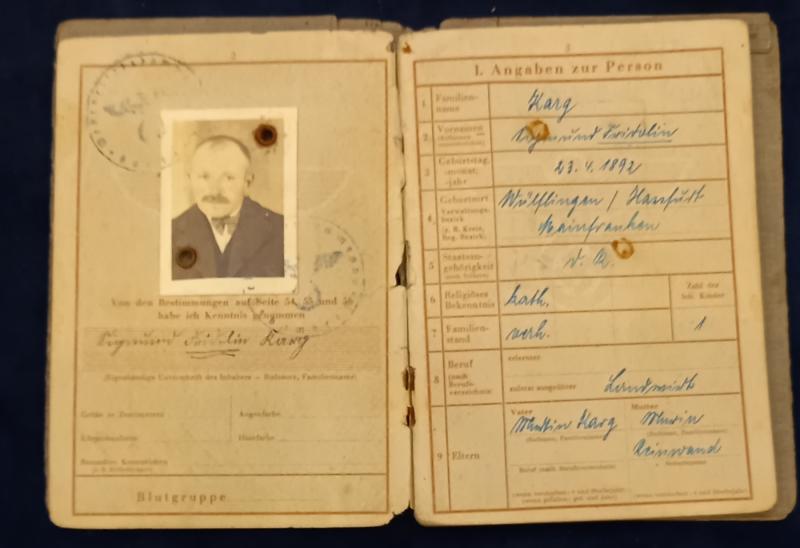 2
Von den Bestimmungen auf Seite 54, 55 und 56
habe ich Kenntnis genommen
Sigmund Fridolin Karg
(Eigenhändige Unterschrift des Inhabers — Rufname, Familienname)
Größe in Zentimetern
Augenfarbe
Haarfarbe
Besondere Kennzeichen
Blutgruppe
3
I. Angaben zur Person
1 Familien-
name
Karg
2 Vornamen
Sigmund Fridolin
3 Geburtstag,
-monat,
-jahr
23.4.1892
4 Geburtsort
Verwaltungs-
bezirk
(z. B. Kreis,
Reg. Bezirk)
Wülflingen / Hassfurt
Mainfranken
5 Staatsan-
gehörigkeit
d. R.
6 Religiöses
Bekenntnis
kath.
Zahl der
leb. Kinder
7 Familien-
stand
verh.
1
8 Beruf
(nach
Berufs-
verzeichnis)
erlernter
zuletzt ausgeübter
Landwirt
9 Eltern
Vater
Martin Karg
(Rufname, Familienname)
Mutter
Maria
(Rufname, Familienname)
Reinwand
Beruf (nach Berufsverzeichnis)